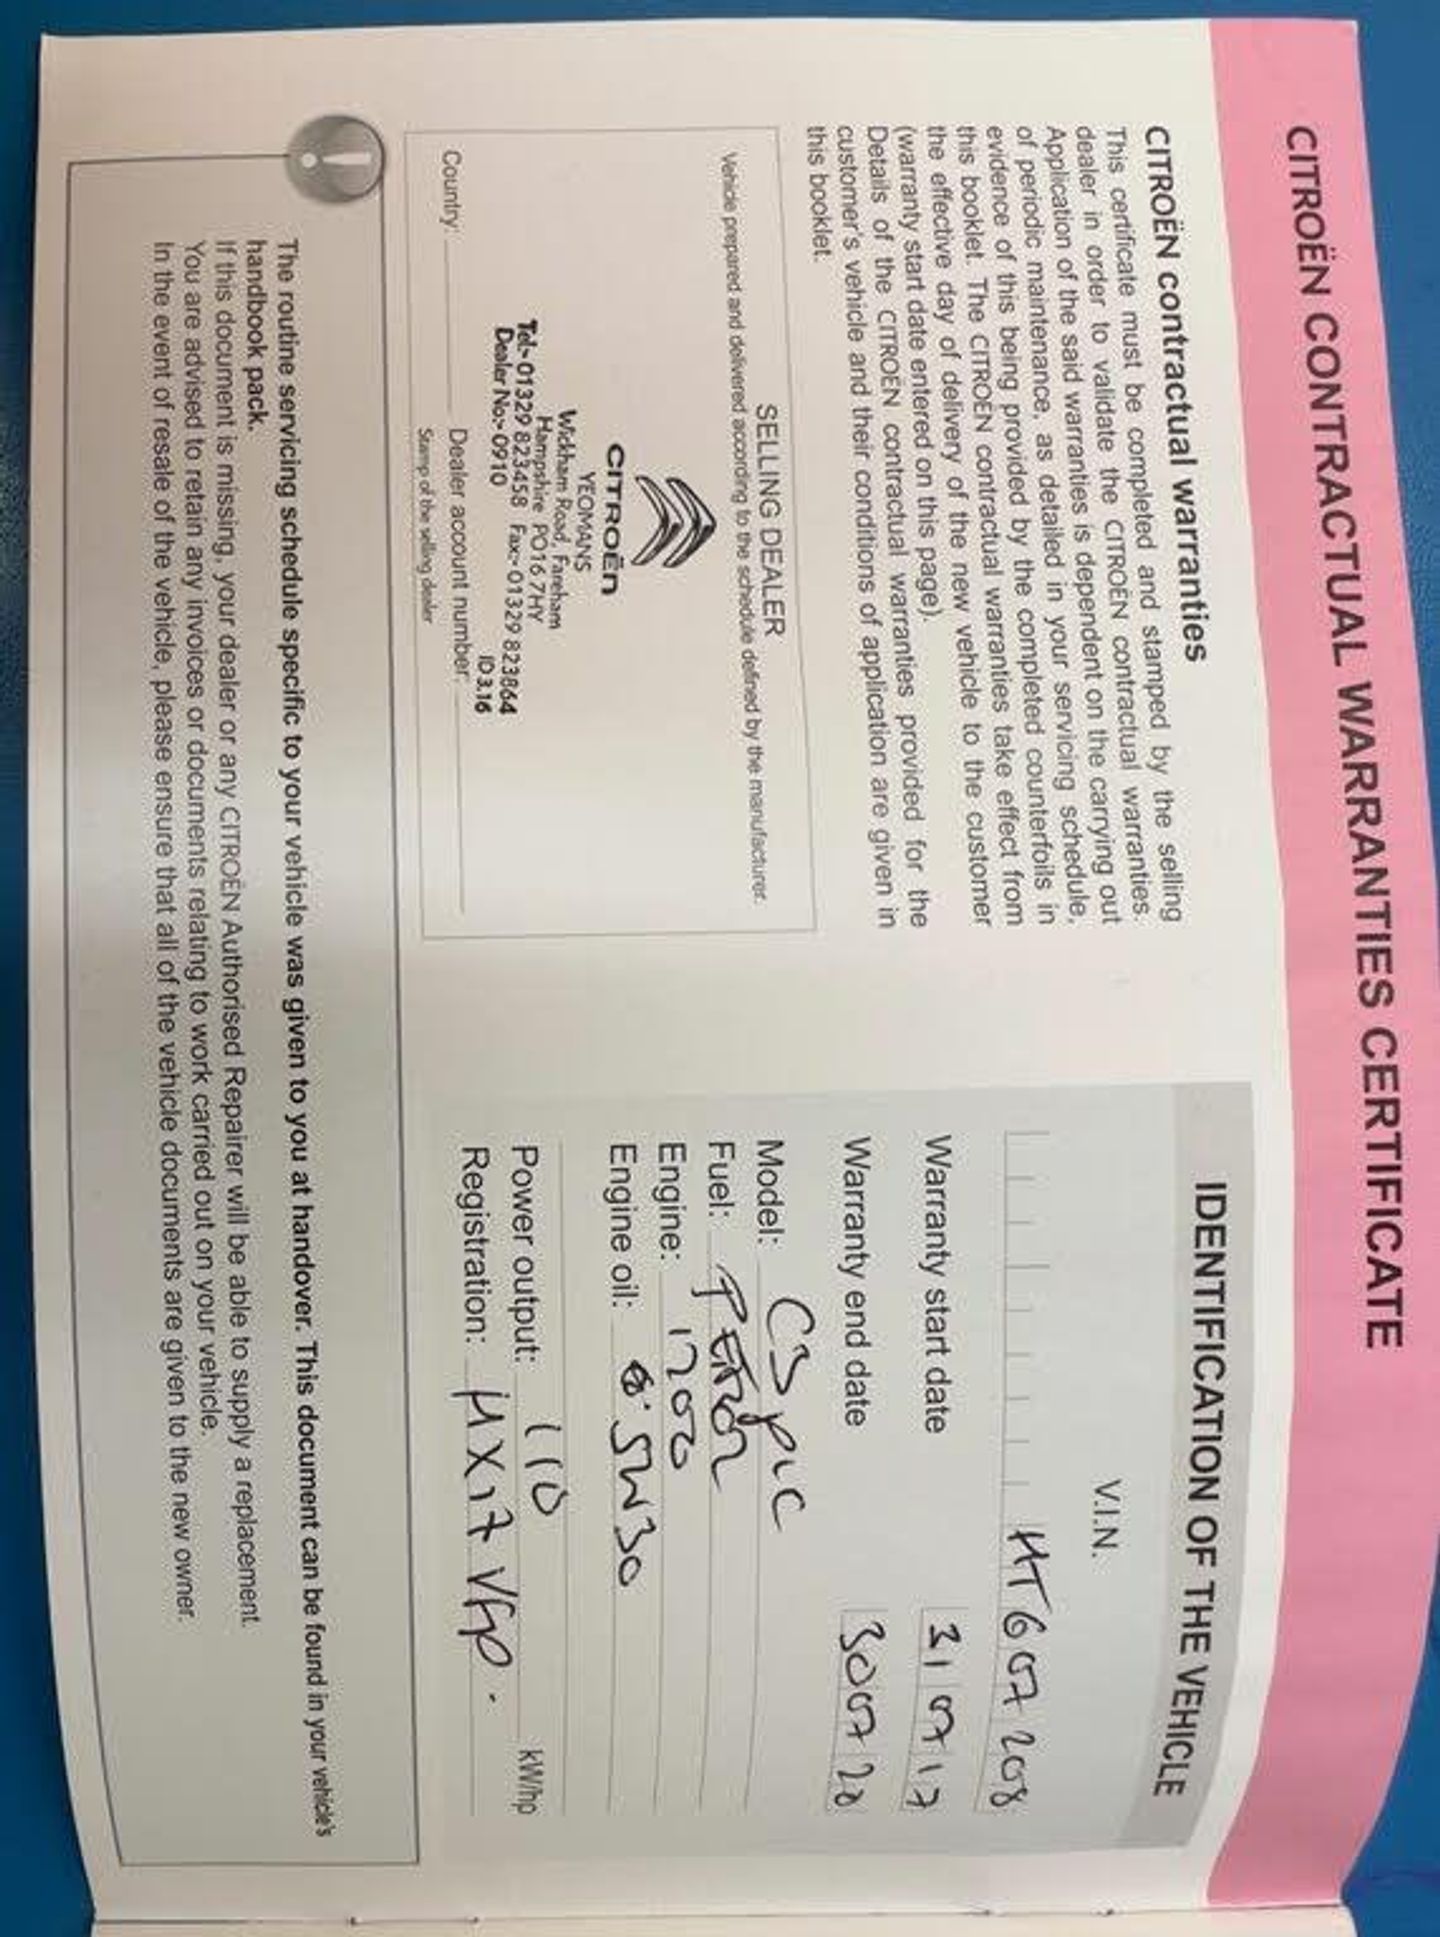 CITROËN CONTRACTUAL WARRANTIES CERTIFICATE
CITROËN contractual warranties
This certificate must be completed and stamped by the selling
dealer in order to validate the CITROËN contractual warranties.
Application of the said warranties is dependent on the carrying out
of periodic maintenance, as detailed in your servicing schedule,
evidence of this being provided by the completed counterfoils in
this booklet. The CITROËN contractual warranties take effect from
the effective day of delivery of the new vehicle to the customer
(warranty start date entered on this page).
Details of the CITROËN contractual warranties provided for the
customer's vehicle and their conditions of application are given in
this booklet.
SELLING DEALER
Vehicle prepared and delivered according to the schedule defined by the manufacturer.
CITROËN
YEOMANS
Wickham Road, Fareham
Hampshire PO16 7HY
Tel:- 01329 823458 Fax:- 01329 823864
Dealer No:- 0910 ID 3.16
Country: Dealer account number:
Stamp of the selling dealer
IDENTIFICATION OF THE VEHICLE
V.I.N.
HT607208
Warranty start date 310717
Warranty end date 300720
Model: C3 pic
Fuel: PETROL
Engine: 1200
Engine oil: 5W30
Power output: 110 kW/hp
Registration: MX17 VGP.
The routine servicing schedule specific to your vehicle was given to you at handover. This document can be found in your vehicle's
handbook pack.
If this document is missing, your dealer or any CITROËN Authorised Repairer will be able to supply a replacement.
You are advised to retain any invoices or documents relating to work carried out on your vehicle.
In the event of resale of the vehicle, please ensure that all of the vehicle documents are given to the new owner.